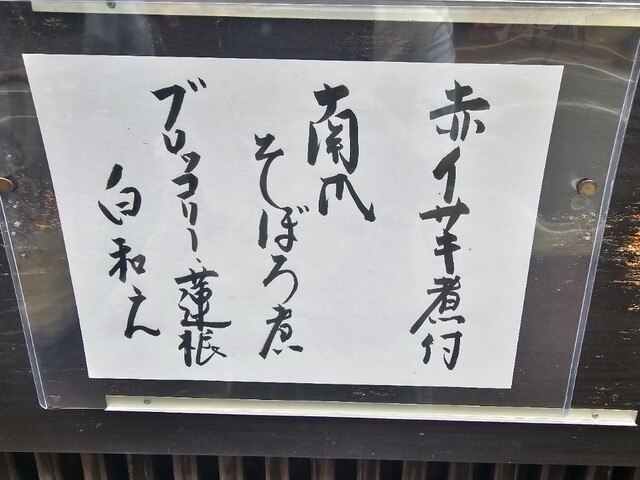 赤イサキ煮付
南瓜
そぼろ煮
ブロッコリー、蓮根
白和え